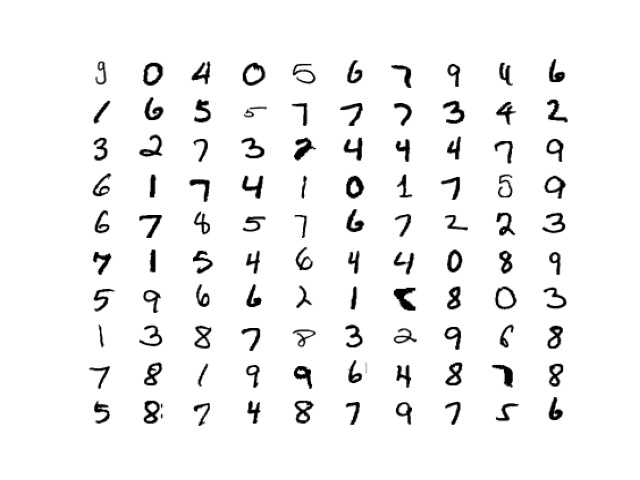 9 0 4 0 5 6 7 9 4 6
1 6 5 5 7 7 7 3 4 2
3 2 7 3 2 4 4 4 7 9
6 1 7 4 1 0 1 7 5 9
6 7 8 5 7 6 7 2 2 3
7 1 5 4 6 4 4 0 8 9
5 9 6 6 2 1 8 0 3
1 3 8 7 8 3 2 9 6 8
7 8 1 9 9 6 4 8 7 8
5 8 7 4 8 7 9 7 5 6